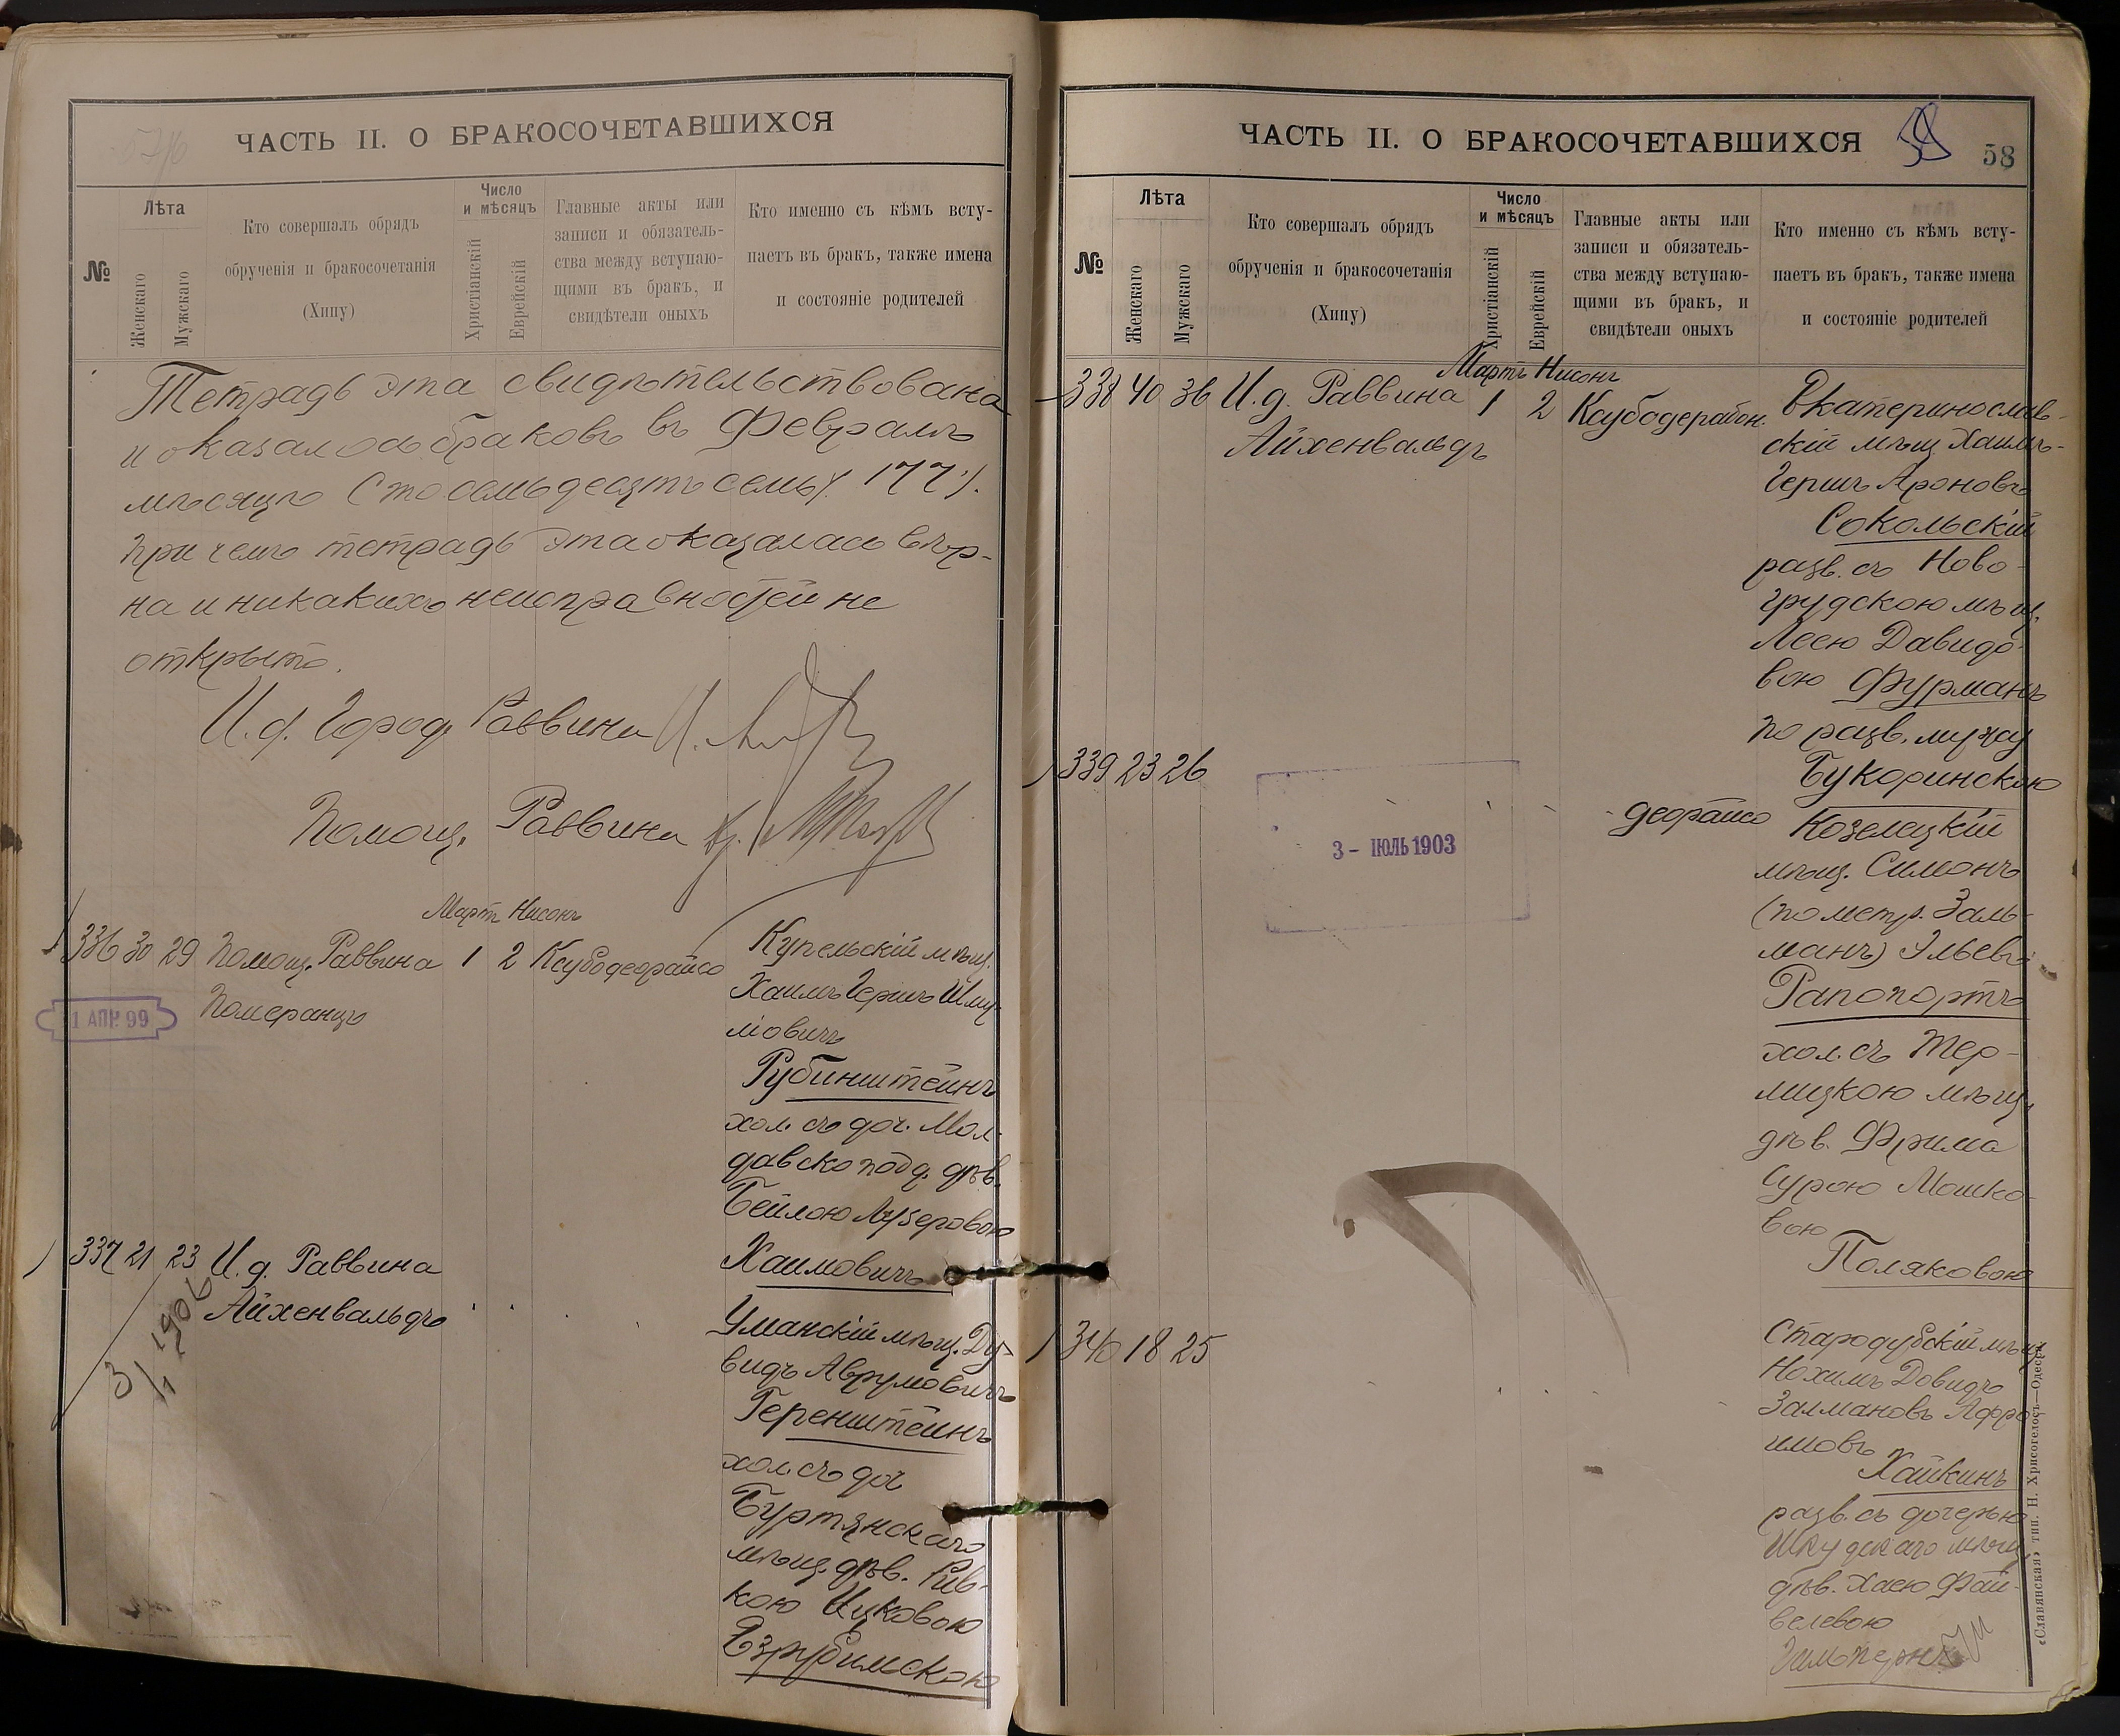 ЧАСТЬ II. О БРАКОСОЧЕТАВШИХСЯ
№
Лѣта
Женскаго
Мужскаго
Кто совершалъ обрядъ
обрученія и бракосочетанія
(Хипу)
Число
и мѣсяцъ
Христіанскій
Еврейскій
Главные акты или
записи и обязатель-
ства между вступаю-
щими въ бракъ, и
свидѣтели оныхъ
Кто именно съ кѣмъ всту-
паетъ въ бракъ, также имена
и состояніе родителей
Тетрадь эта свидѣтельствована
и оказалось браковъ въ Февралѣ
мѣсяцѣ Сто семьдесятъ семь (177).
При чемъ тетрадь эта оказалась вѣр-
на и никакихъ неисправностей не
открыто.
И. д. Город. Раввина
Помощ. Раввина
Мартъ Нисонъ
336 30 29 Помощ. Раввина 1 2 Ксубодеорайсо
Померанцъ
1 АПР. 99
Купельскій мѣщ.
Хаимъ Гершъ Шму-
ліовичъ
Рубинштейнъ
хол. съ доч. Мол-
давско подд. дѣв.
Бейлою Лузеровою
Хаимовичъ
337 21 23 И. д. Раввина
Айхенвальдъ
3/1 1906
Уманскій мѣщ. Ду-
видъ Аврумовичъ
Геренштейнъ
хол. съ доч
Буртянскаго
мѣщ. дѣв. Рив-
кою Ицковою
Езрубимскою
ЧАСТЬ II. О БРАКОСОЧЕТАВШИХСЯ
58
58
№
Лѣта
Женскаго
Мужскаго
Кто совершалъ обрядъ
обрученія и бракосочетанія
(Хипу)
Число
и мѣсяцъ
Христіанскій
Еврейскій
Главные акты или
записи и обязатель-
ства между вступаю-
щими въ бракъ, и
свидѣтели оныхъ
Кто именно съ кѣмъ всту-
паетъ въ бракъ, также имена
и состояніе родителей
Мартъ Нисонъ
338 40 36 И. д. Раввина 1 2 Ксубодерабон.
Айхенвальдъ
Екатеринослав-
скій мѣщ. Хаимъ-
Гершъ Ароновъ
Сокольскій
разв. съ Ново-
грудскою мѣщ.
Леею Давидо-
вою Фурманъ
по разв. мужу
Букоринскою
339 23 26
3 - ІЮЛЬ 1903
деорайсо
Козелецкій
мѣщ. Симонъ
(по метр. Заль-
манъ) Эльевъ
Рапопортъ
хол. съ Тер-
лицкою мѣщ.
дѣв. Фрима
Сурою Мошко-
вою
Поляковою
340 18 25
Стародубскій мѣщ
Нохимъ Довидъ
Залмановъ Афро-
имовъ
Хайкинъ
разв. съ дочерью
Шкудскаго мѣщ.
дѣв. Хаею Фай-
велевою
Гальпернъ
«Славянская» тип. Н. Хрисогелосъ—Одесса